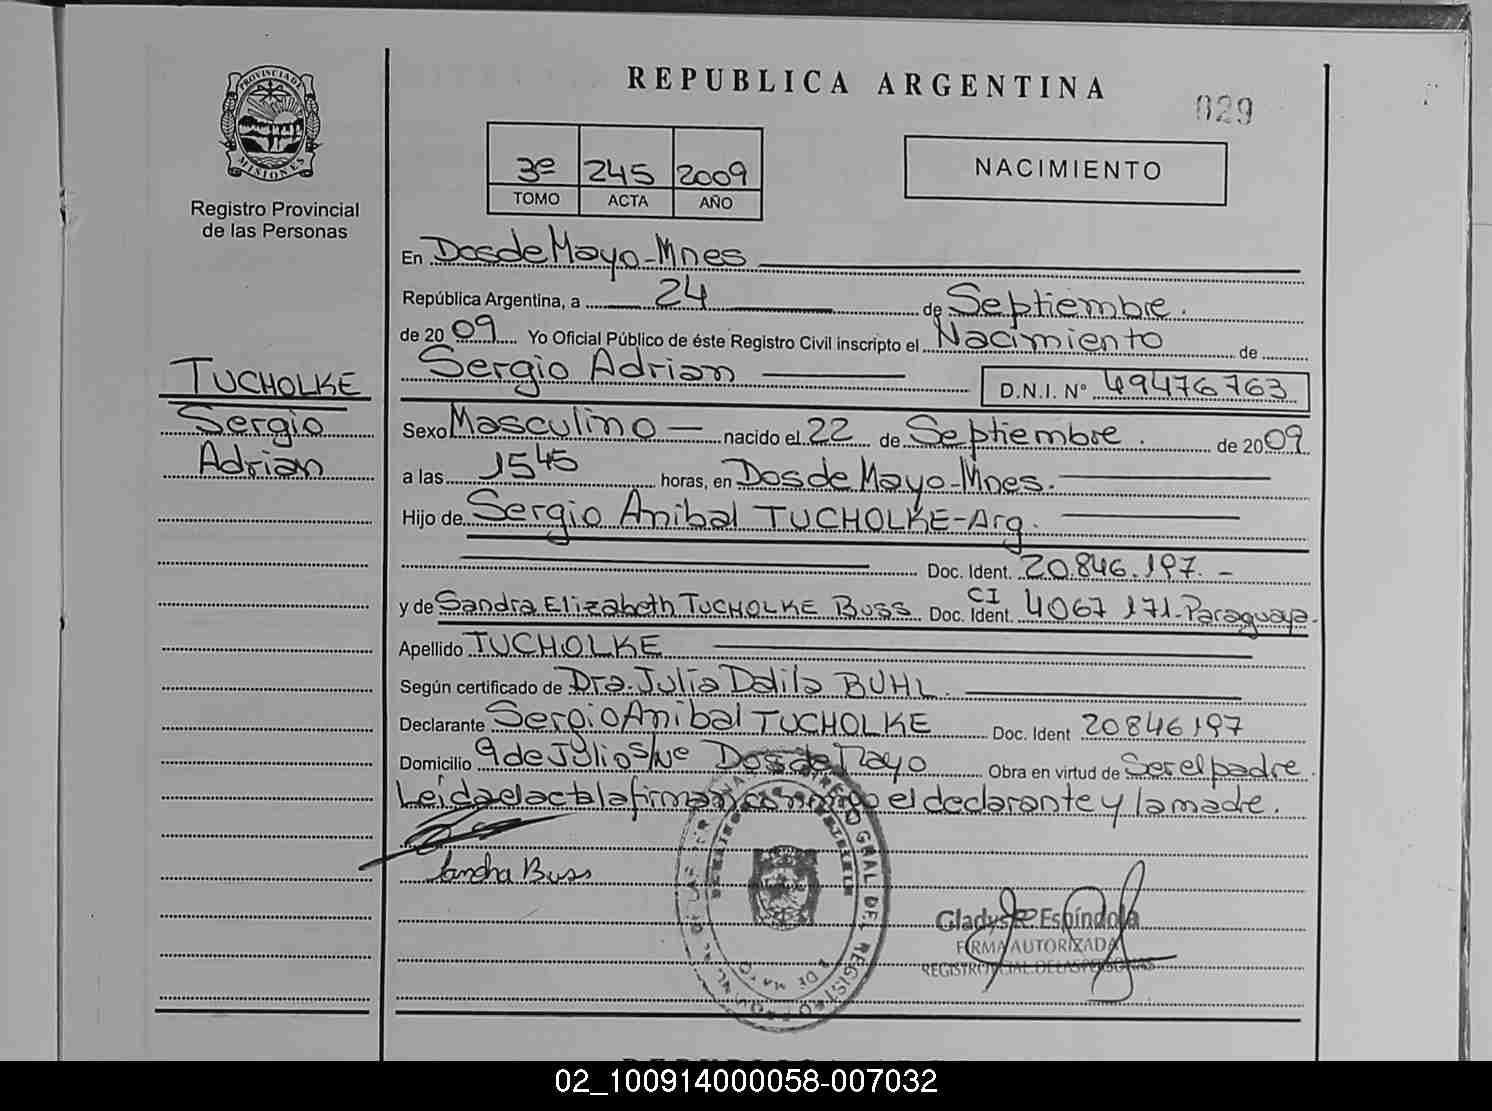 REPUBLICA ARGENTINA
029
PROVINCIA DE
MISIONES
Registro Provincial
de las Personas
3º 245 2009
TOMO ACTA AÑO
NACIMIENTO
En Dos de Mayo-Mnes
República Argentina, a 24 de Septiembre.
de 2009 Yo Oficial Público de éste Registro Civil inscripto el Nacimiento de
Sergio Adrian D.N.I. Nº 49476763
TUCHOLKE
Sergio
Adrian
Sexo Masculino nacido el 22 de Septiembre. de 2009
a las 15 45 horas, en Dos de Mayo-Mnes.
Hijo de Sergio Anibal TUCHOLKE-Arg.
Doc. Ident. 20.846.197.-
y de Sandra Elizabeth TUCHOLKE BUSS Doc. Ident. CI 4067171-Paraguaya.
Apellido TUCHOLKE
Según certificado de Dra. Julia Dalila BUHL.
Declarante Sergio Anibal TUCHOLKE Doc. Ident 20846197
Domicilio 9 de Julio s/nº Dos de Mayo Obra en virtud de Ser el padre.
Leída el acta la firman conmigo el declarante y la madre.
Sandra Buss
GRAL DEL REGISTRO
DE MAYO
Gladys E. Espíndola
FIRMA AUTORIZADA
02_100914000058-007032